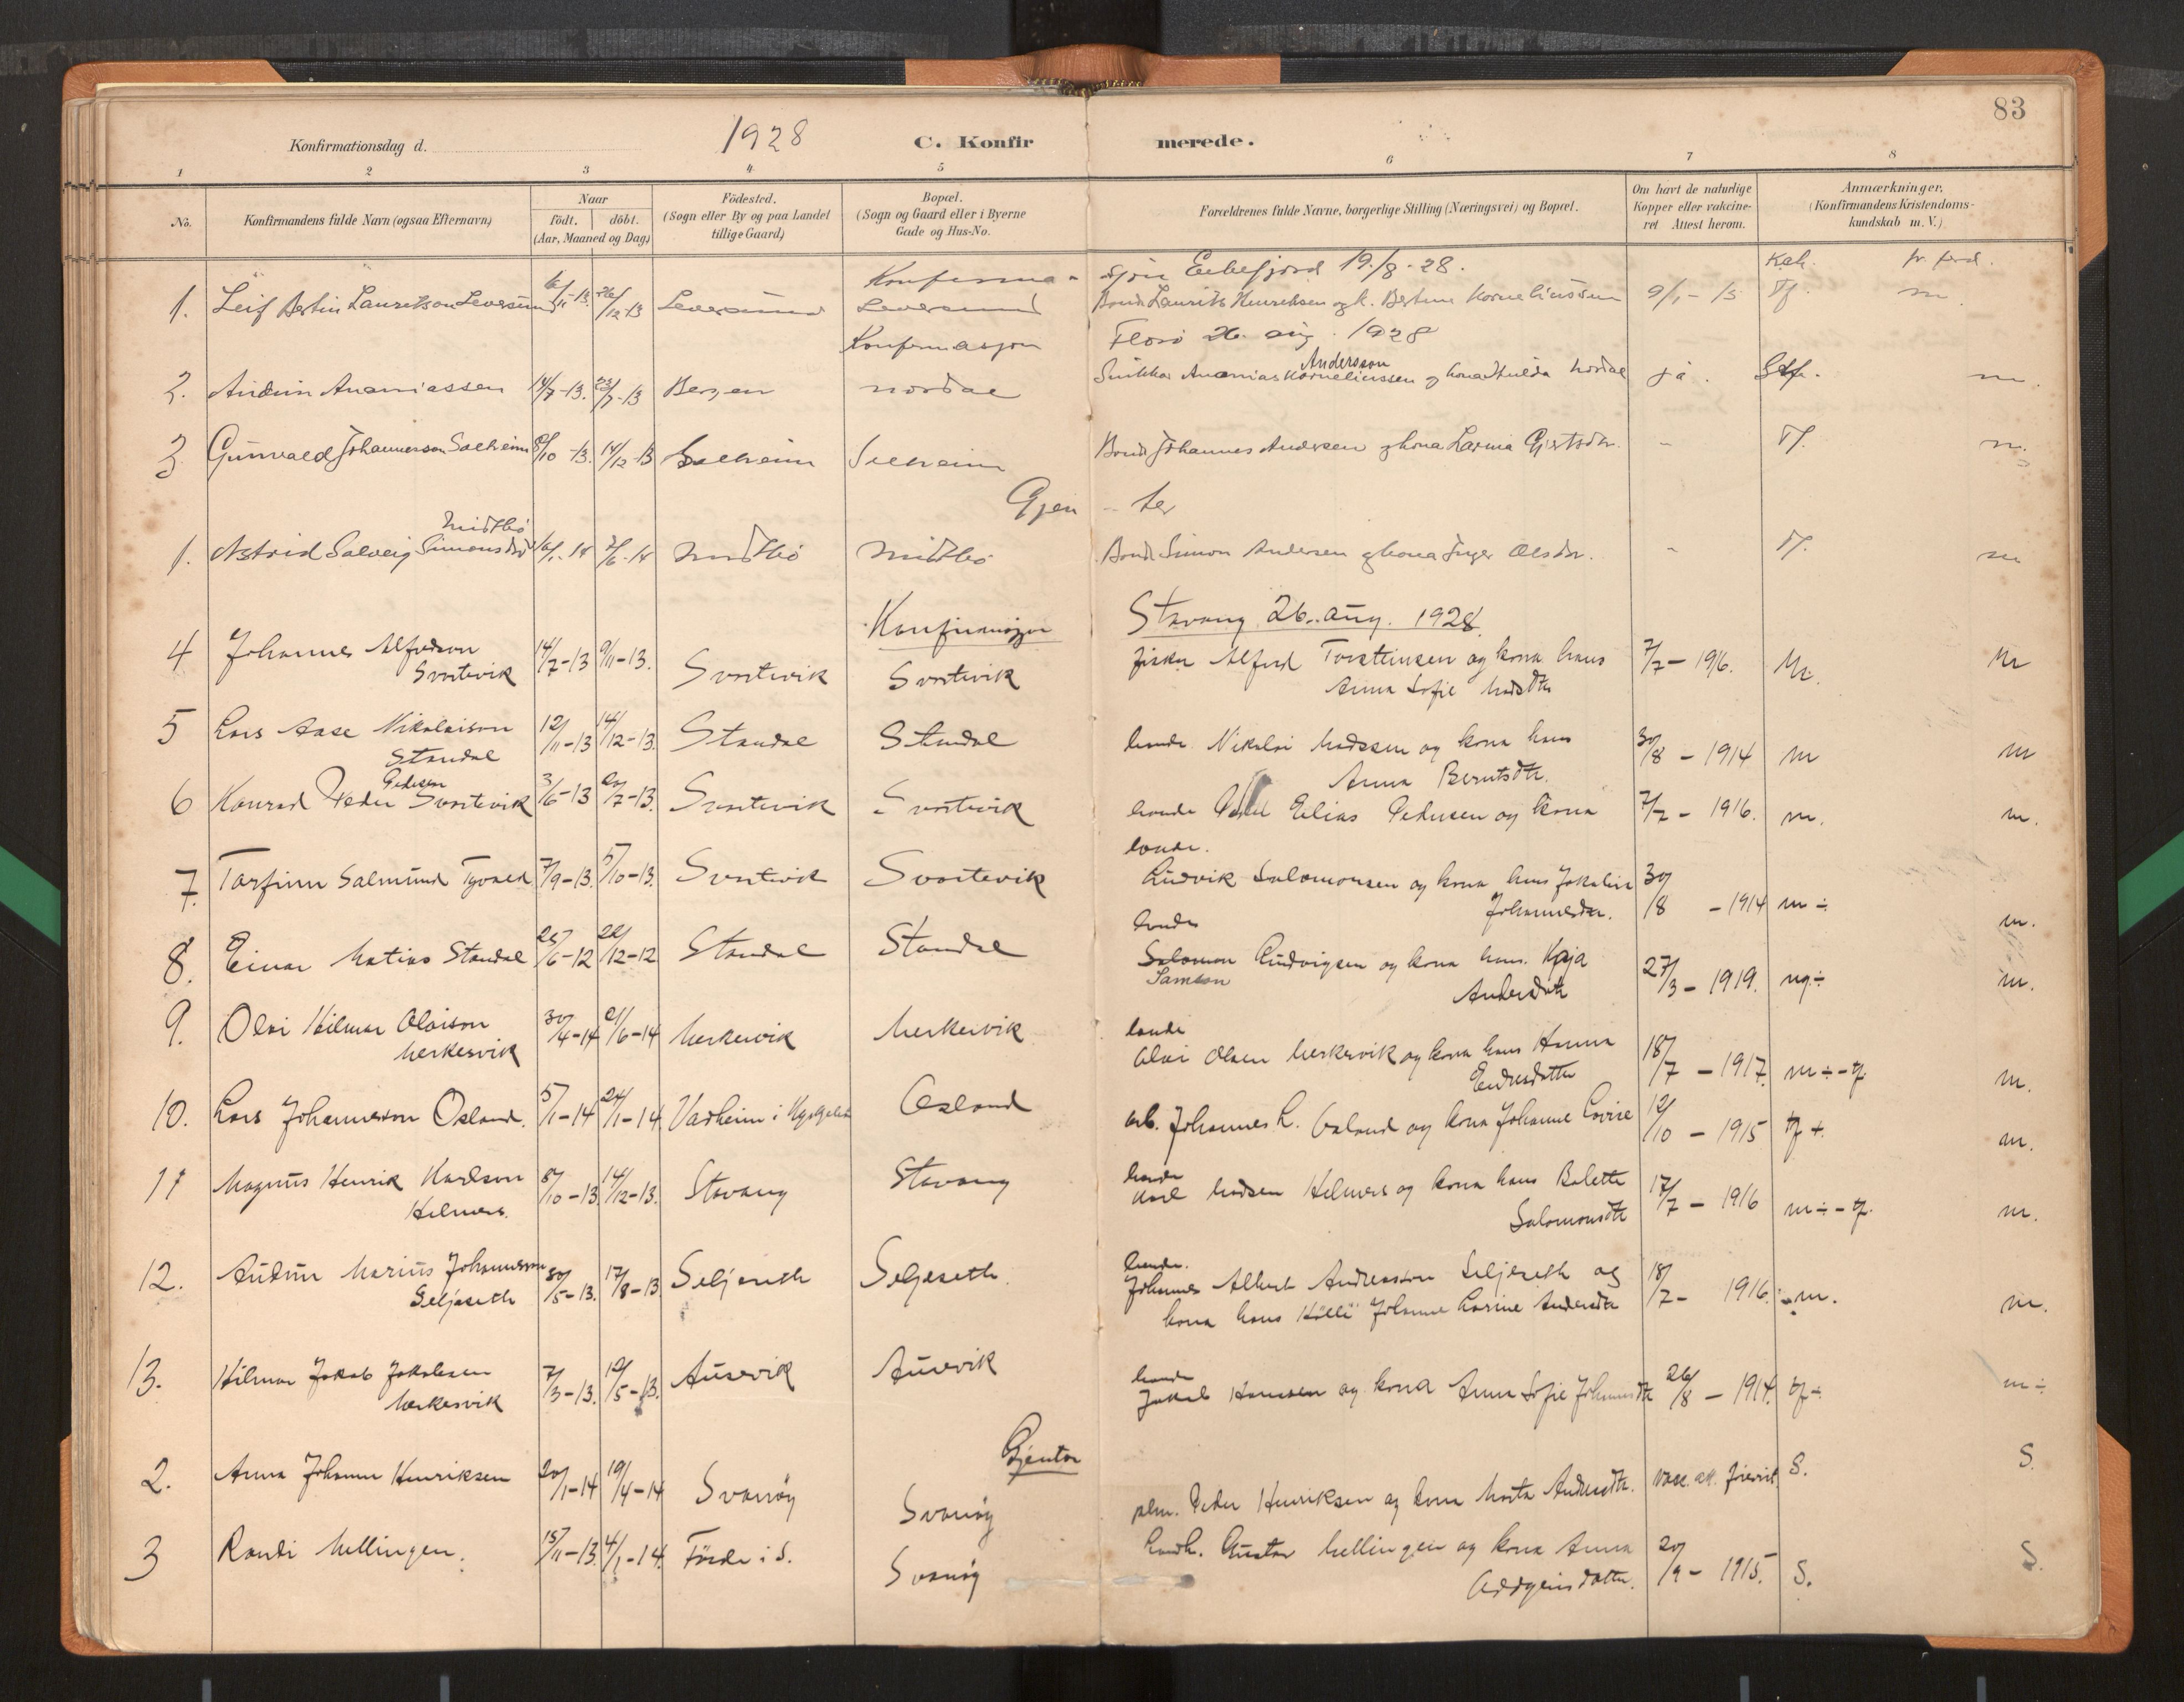 83
Konfirmationsdag d. 1928 C. Konfirmerede.
1 2 3 4 5 6 7 8
No. Konfirmandens fulde Navn (ogsaa Efternavn) Naar födt. döbt. (Aar, Maaned og Dag) Födested. (Sogn eller By og paa Landet tillige Gaard) Bopæl. (Sogn og Gaard eller i Byerne Gade og Hus-No. Forældrenes fulde Navne, borgerlige Stilling (Næringsvei) og Bopæl. Om havt de naturlige Kopper eller vakcineret Attest herom. Anmærkninger. (Konfirmandens Kristendomskundskab m. V.)
Konfirma- sjon Eikefjord 19/8-28.
1. Leif Bertin Lauritson Leversund 6/11-13. 26/12-13 Leversund Leversund Bonde Laurits Henriksen og k. Bertine Korneliussen 9/1-15 Tf. m.
Konfirmasjon Florö 26. aug. 1928
2. Audun Ananiassen 14/7-13. Bergen Nordal Snikkar Ananias Korneliussen Andersson og kona Hulda Nordal ja. m.
3 Gunvald Johannesson Solheim 8/10-13. 14/12-13 Solheim Solheim Bonde Johannes Andersen og kona Larina Gjertsdtr. - Tf. m.
Gjen - ter
1. Astrid Solveig Simonsdtr Midtbö 6/1-14 2/6-14 Midtbö Midtbö Bonde Simon Andersen og kona Inger Olsdtr. - Tf. m
Konfirmasjon Stavang 26. aug. 1928.
4 Johannes Alfredson Svortevik 14/7-13 9/11-13. Svortevik Svortevik fisker Alfred Torsteinsen og kona hans Anna Sofie Madsdtr 7/7-1916. M. M
5 Lars Aase Nikolaison Standal 12/11-13 14/12-13. Standal Standal bonde Nikolai Madssen og kona hans Anna Berntsdtr. 30/8-1914 m m
6 Konrad Peder Pedersen Svortevik 3/6-13 20/7-13. Svortevik Svortevik bonde Elias Pedersen og kona 7/7-1916. m. m.
7. Torfinn Salmund 7/9-13. 5/10-13. Svortevik Svortevik bonde. Ludvik Salomonsen og kona hans Jokaline Johannesdtr. 30/8-1914 m ÷ m.
8. Einar Matias Standal 25/6-12 22/12-12 Standal Standal bonde Salomon Samson Ludvigsen og kona hans. Kaja Andersdotr 27/3-1919. ng÷ m.
9. Olai Hilmar Olaison Merkesvik 30/4-14 21/6-14 Merkesvik Merkesvik bonde Olai Olsen Merkesvik og kona hans Hanna Endresdotter 18/7-1917. m÷-tf. m.
10. Lars Johanneson Osland. 5/1-14 24/1-14. Vadheim i Osland arb. Johannes L. Osland og kona Johanne Lovise 12/10-1915 tf+. m.
11 Magnus Henrik Karlson Helmers. 8/10-13. 14/12-13. Stavang Stavang bonde Karl Madsen Helmers og kona hans Bolette Salomonsdtr 17/7-1916 m÷-tf. m.
12. Audun Marius Johannesson Seljeseth 30/5-13. 17/8-13 Seljeseth Seljeseth. bonde. Johannes Albert Andreasson Seljeseth og kona hans Johanne Larine Andersdtr 18/7-1916. m. m.
13. Hilmar Jakob Jakobsen Merkesvik 7/3-13. 12/5-13. Ausevik Ausevik bonde Jakob Hanssen og kona Anna Sofie Johannesdtr 26/8-1914. tf÷ m÷
Gjentor
2. Anna Johanne Henriksen 20/1-14 19/4-14 Svanöy Svanöy Peder Henriksen og kona Marta Andersdtr. S. S.
3 Randi Mellingen. 15/11-13. 4/1-14. Förde i S. Svanöy Gustav Mellingen og kona Anna 20/9-1915. S. S.